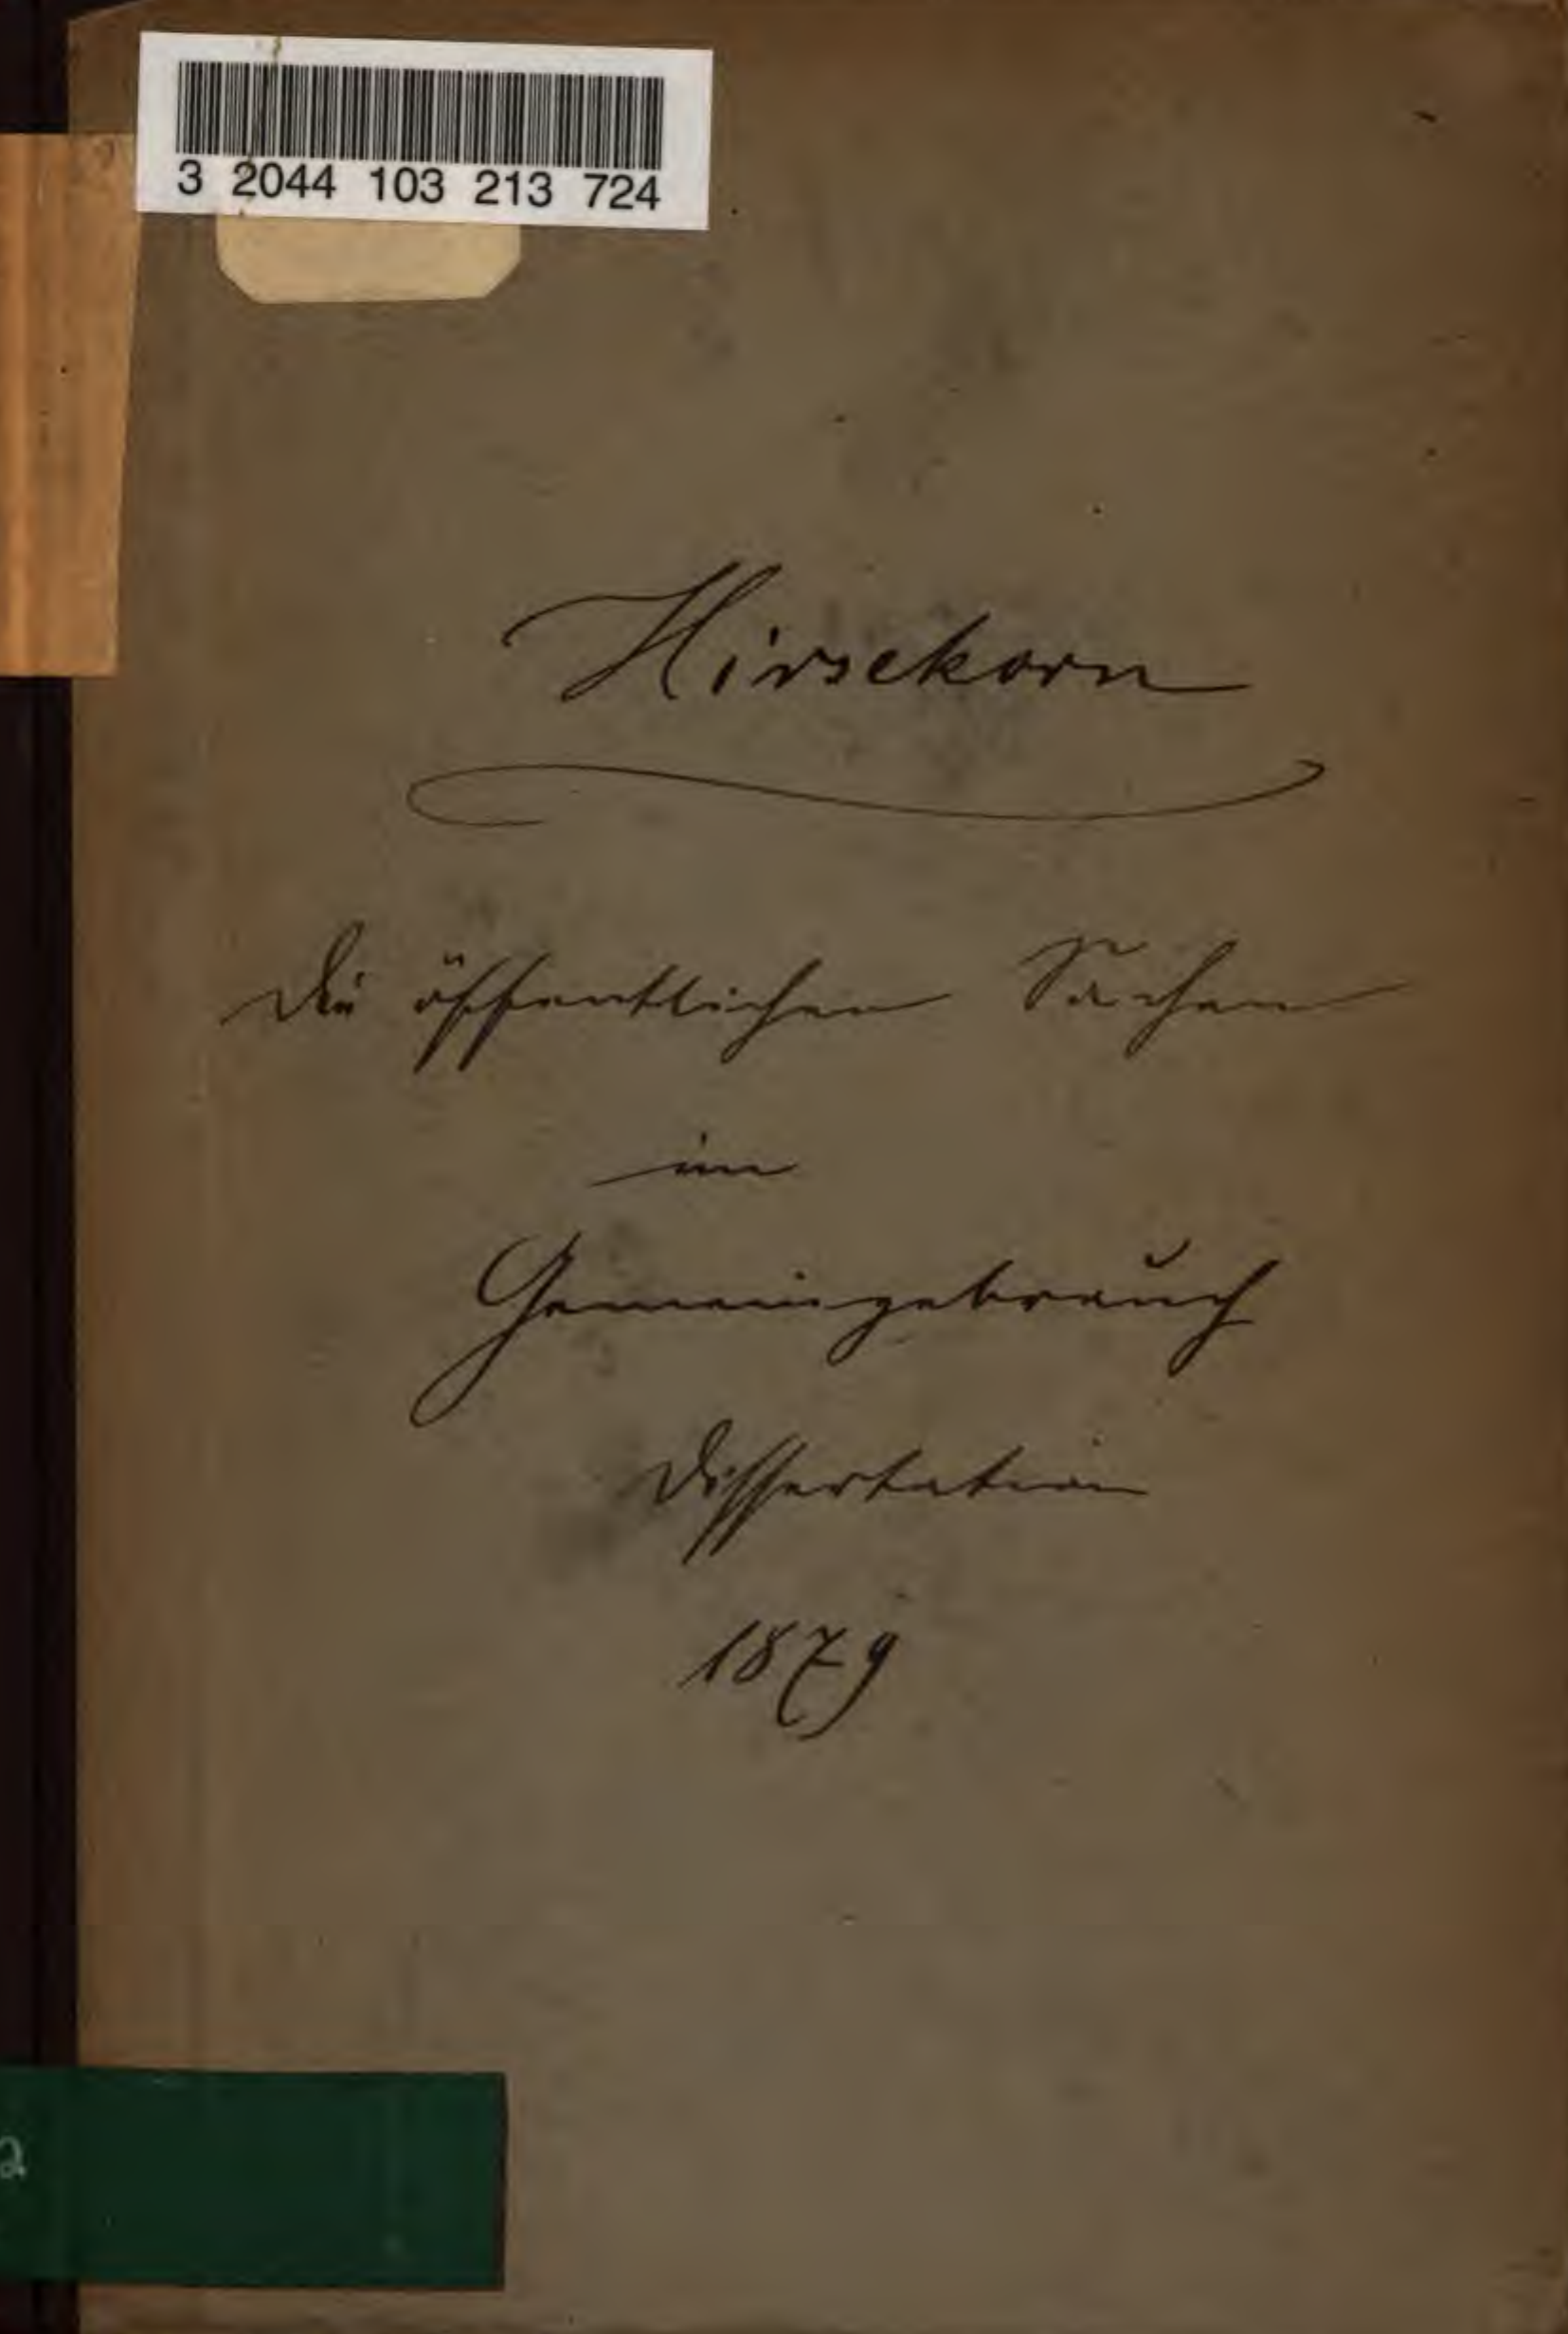 3 2044 103 213 724
Hirsekorn
Die öffentlichen Sachen
im
Gemeingebrauch
Dissertation
1879
2